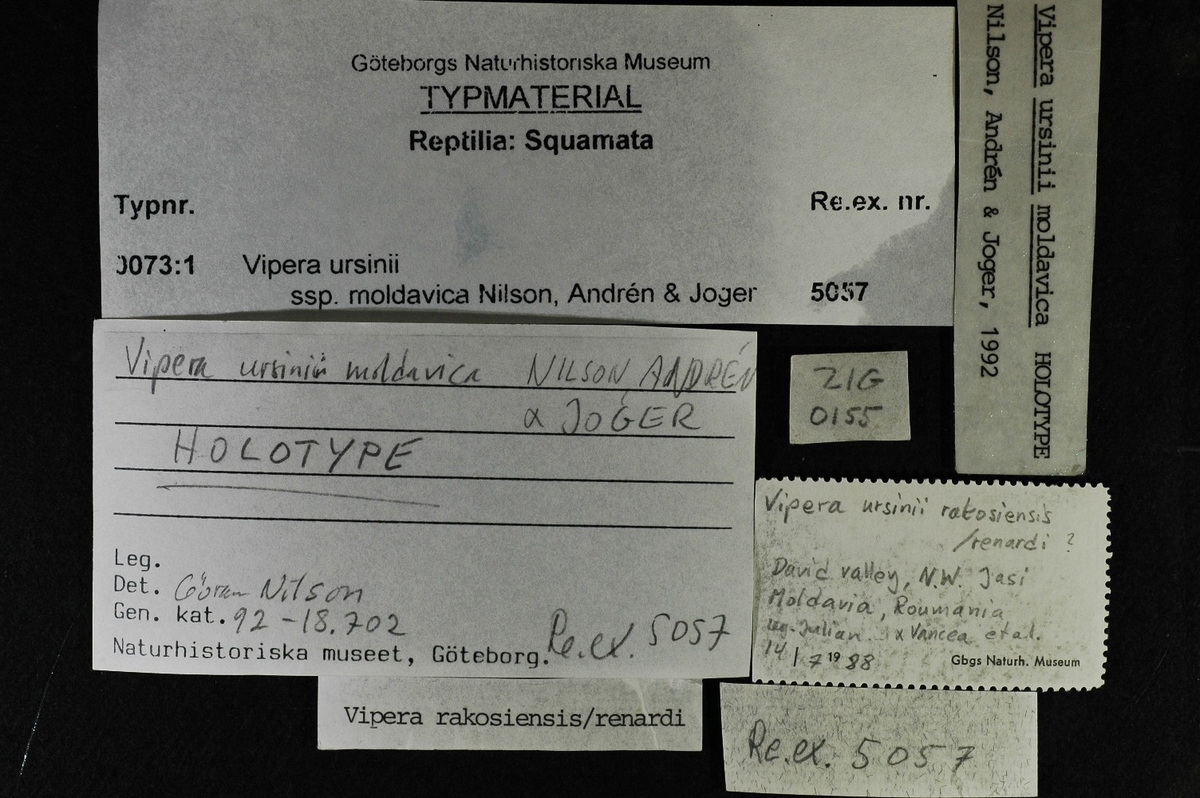 Göteborgs Naturhistoriska Museum
TYPMATERIAL
Reptilia: Squamata
Typnr.
Re.ex. nr.
0073:1 Vipera ursinii
ssp. moldavica Nilson, Andrén & Joger 5057
Vipera ursinii moldavica HOLOTYPE
Nilson, Andrén & Joger, 1992
Vipera ursinii moldavica NILSON, ANDRÉN
& JOGER
HOLOTYPE
Leg.
Det. Göran Nilson
Gen. kat. 92-18.702
Naturhistoriska museet, Göteborg.
Re.ex. 5057
ZIG
0155
Vipera ursinii rakosiensis
/renardi ?
David valley, N.W. Jasi
Moldavia, Roumania
leg. Julian & Vancea et al.
14/7 1988
Gbgs Naturh. Museum
Vipera rakosiensis/renardi
Re.ex. 5057